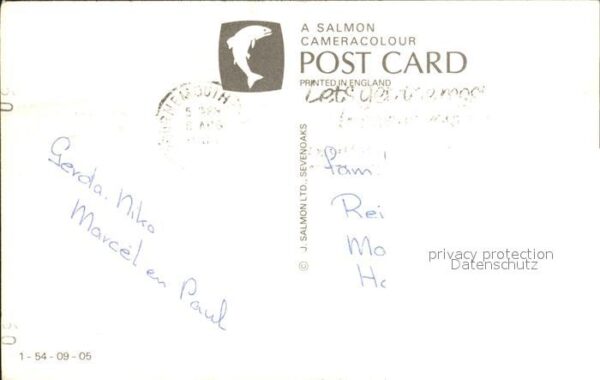 A SALMON
CAMERACOLOUR
POST CARD
PRINTED IN ENGLAND
Let's
© J. SALMON LTD., SEVENOAKS
Gerda. Niko
Marcél en Paul
fam
Rei
Mo
Ha
privacy protection
Datenschutz
1-54-09-05